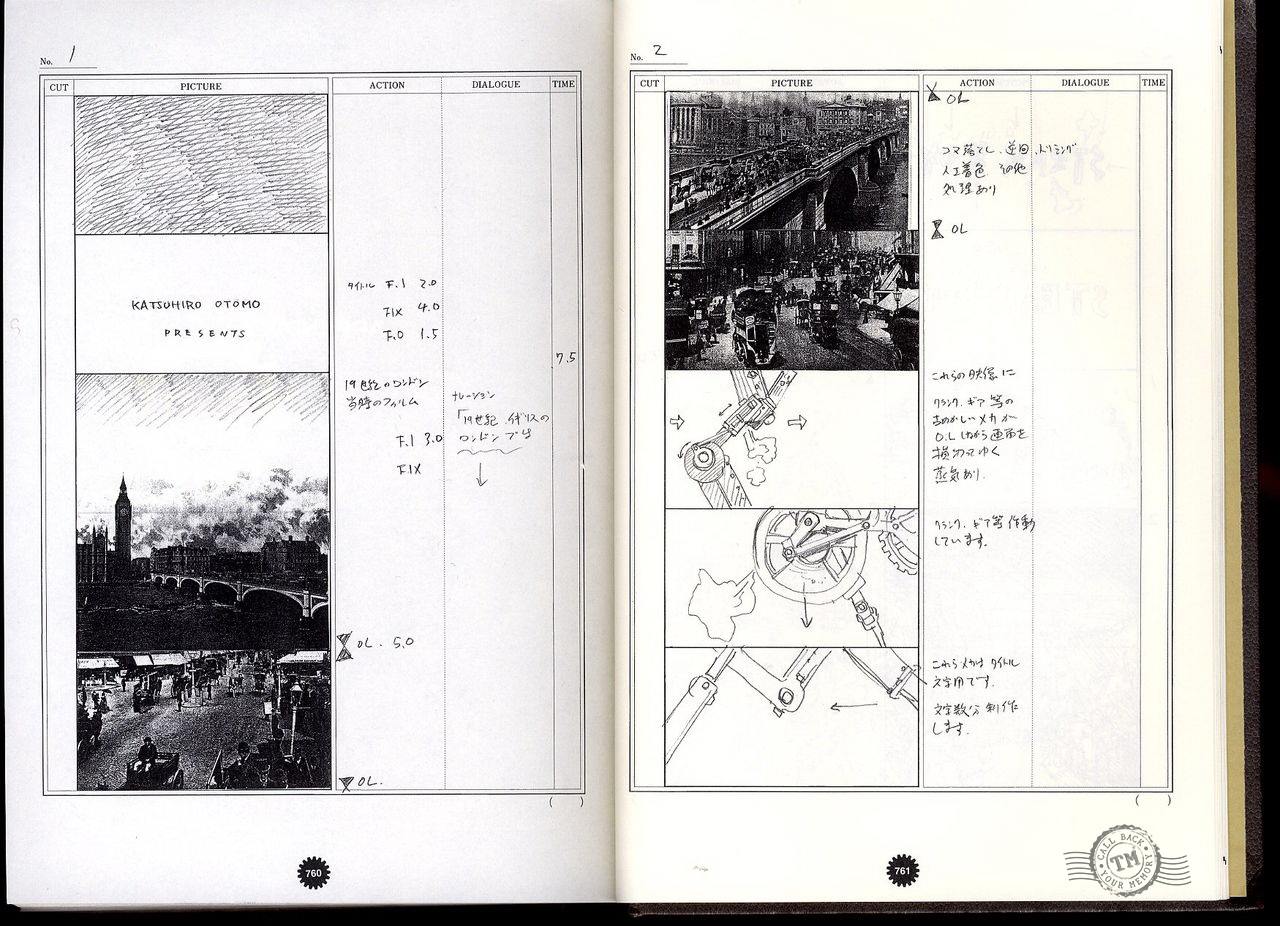 No. 1
CUT PICTURE ACTION DIALOGUE TIME
KATSUHIRO OTOMO
PRESENTS
タイトル F.I 2.0
FIX 4.0
F.O 1.5
7.5
19世紀のロンドン
当時のフィルム
F.I 3.0
FIX
ナレーション
「19世紀 イギリスの
ロンドンでは
OL. 5.0
OL.
( )
760
No. 2
CUT PICTURE ACTION DIALOGUE TIME
OL
コマ落とし、逆回、トリミング
人工着色 その他
処理あり
OL
これらの映像に
クランク、ギア等の
メカが
O.Lしながら画面を
横切ってゆく
蒸気あり.
クランク、ギア等作動
しています.
これらメカは タイトル
文字用です.
文字数分 制作
します.
( )
761
CALL BACK
TM
YOUR MEMORY